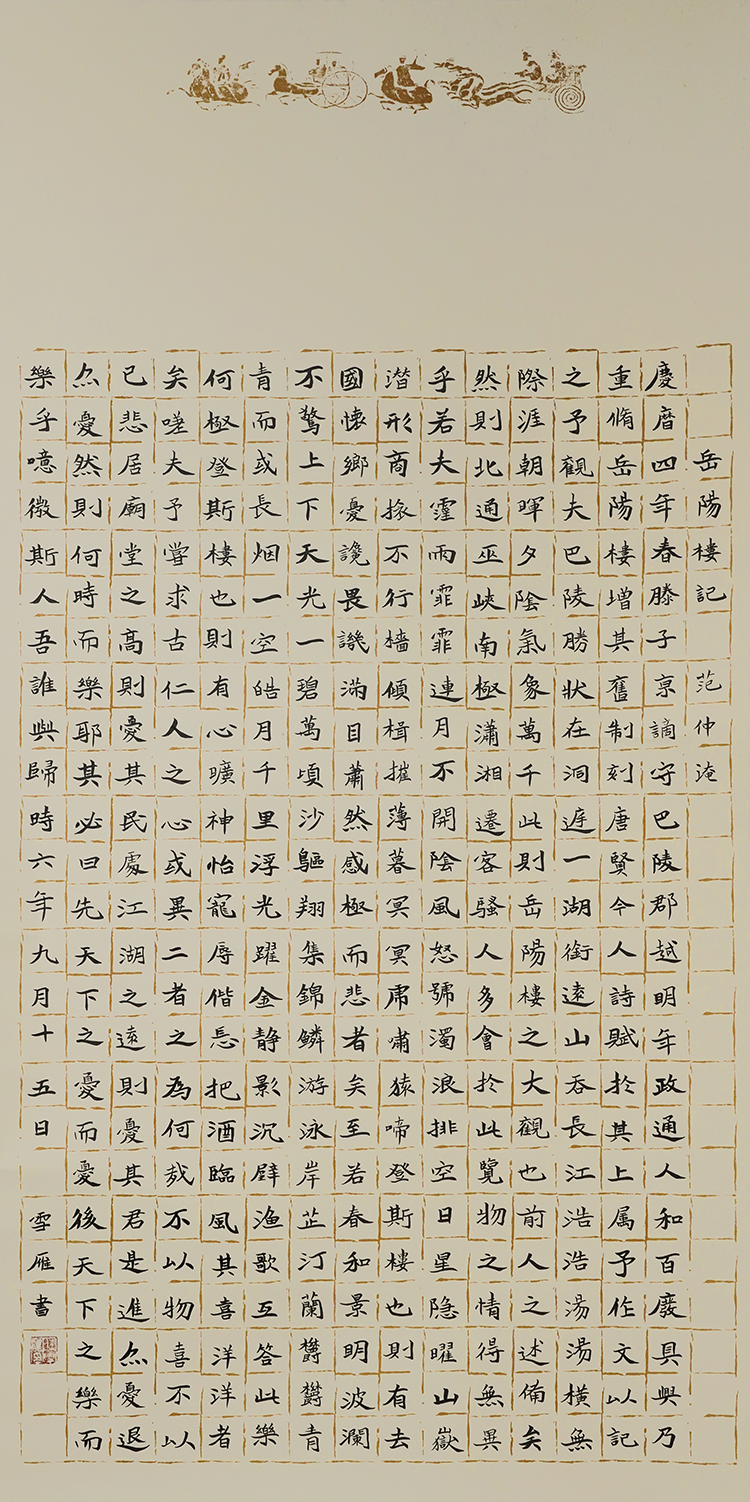 岳陽樓記 范仲淹
慶曆四年春滕子京謫守巴陵郡越明年政通人和百廢具興乃
重脩岳陽樓增其舊制刻唐賢今人詩賦於其上属予作文以記
之予觀夫巴陵勝狀在洞庭一湖銜遠山吞長江浩浩湯湯橫無
際涯朝暉夕陰氣象萬千此則岳陽樓之大觀也前人之述備矣
然則北通巫峽南極瀟湘遷客騷人多會於此覽物之情得無異
乎若夫霪雨霏霏連月不開陰風怒號濁浪排空日星隐曜山嶽
潛形商旅不行檣傾楫摧薄暮冥冥虎嘯猿啼登斯樓也則有去
國懷鄉憂讒畏譏滿目蕭然感極而悲者矣至若春和景明波瀾
不驚上下天光一碧萬頃沙鷗翔集錦鱗游泳岸芷汀蘭欝欝青
青而或長烟一空皓月千里浮光躍金静影沉璧渔歌互答此樂
何極登斯樓也則有心曠神怡寵辱偕忘把酒臨風其喜洋洋者
矣嗟夫予嘗求古仁人之心或異二者之為何哉不以物喜不以
已悲居廟堂之高則憂其民處江湖之遠則憂其君是進亦憂退
亦憂然則何時而樂耶其必曰先天下之憂而憂後天下之樂而
樂乎噫微斯人吾誰與歸時六年九月十五日 雪雁書